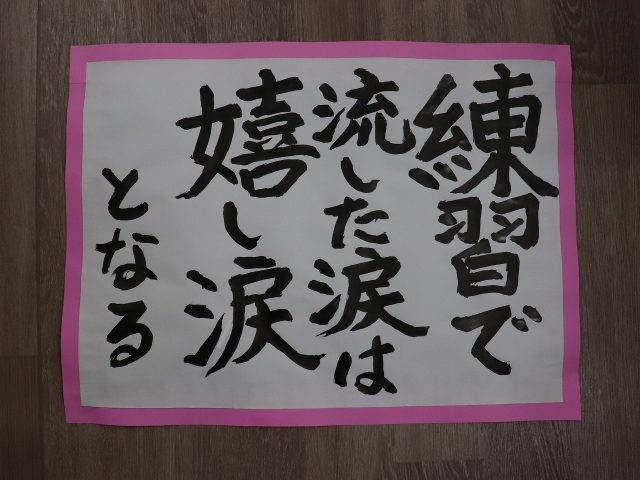 練習で
流した涙は
嬉し涙
となる